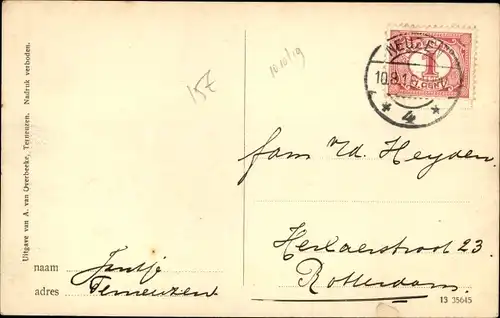 Uitgave van A. van Overbeeke, Terneuzen. Nadruk verboden.
15€
10.8.1
1
4
Fam v/d. Heyden.
Herlaerstroot 23.
Rotterdam.
naam Jantje
adres Terneuzen
13 35645